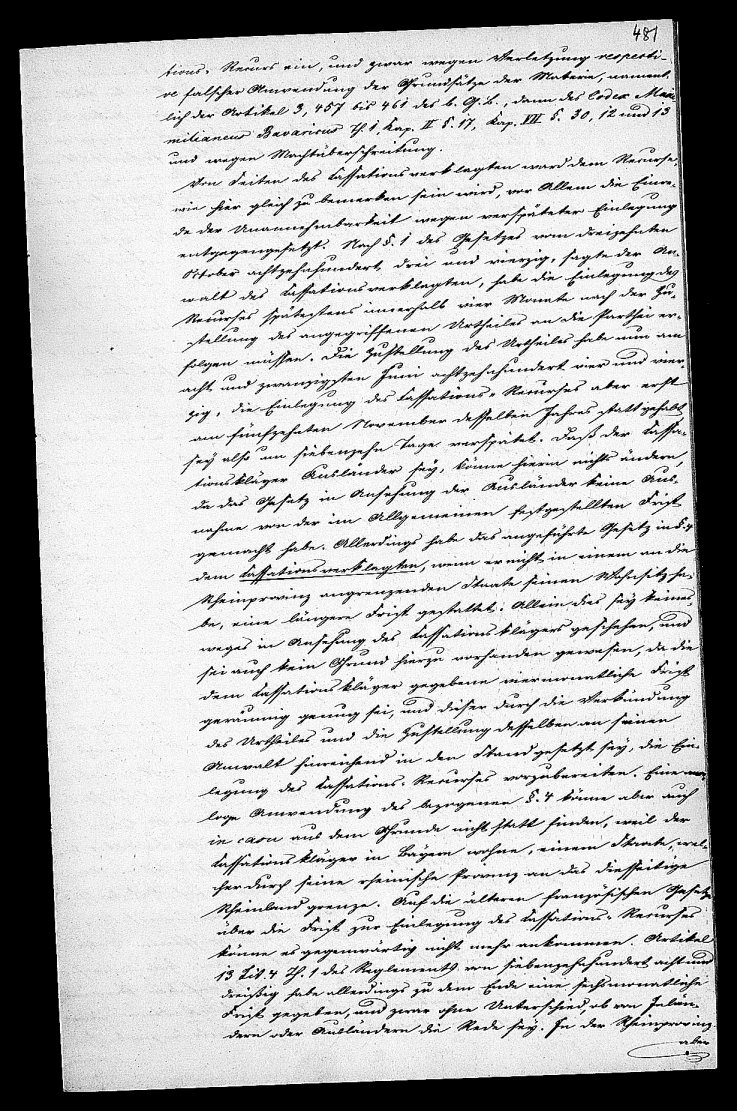 481
tions-Recurs ein, und zwar wegen Verletzung respecti-
ve falscher Anwendung der Grundsätze der Materie, nament-
lich der Artikel 3, 457 bis 461 des b. G. b., dann des Codex Maxi
milianeus Bavaricus Th. 1 Kap. II §. 17, Kap. VII §. 30, 12 und 13
und wegen Machtüberschreitung.
Von Seiten des Cassationsverklagten ward dem Recurse,
wie hier gleich zu bemerken sein wird, vor Allem die Einre-
de der Unannehmbarkeit wegen verspäteter Einlegung
entgegengesetzt. Nach §. 1 des Gesetzes vom dreizehnten
Oktober achtzehnhundert drei und vierzig, sagte der An-
walt des Cassationsverklagten, habe die Einlegung des
Recurses spätestens innerhalb vier Monate nach der Zu-
stellung des angegriffenen Urtheiles an die Parthei er-
folgen müssen. Die Zustellung des Urtheiles habe nun am
acht und zwanzigsten Juni achtzehnhundert vier und vier-
zig, die Einlegung des Cassations-Recurses aber erst
am fünfzehnten November desselben Jahres statt gehabt,
sey also um siebenzehn Tage verspätet. Daß der Cassa-
tionskläger Ausländer sey, könne hierin nichts ändern,
da das Gesetz in Ansehung der Ausländer keine Aus-
nahme von der im Allgemeinen festgestellten Frist
gemacht habe. Allerdings habe das angeführte Gesetz in §. 4
dem Cassationsverklagten, wenn er nicht in einem an die
Rheinprovinz angrenzenden Staate seinen Wohnsitz ha-
be, eine längere Frist gestattet. Allein dies sey keines-
weges in Ansehung des Cassationsklägers geschehen, und
sei auch kein Grund hierzu vorhanden gewesen, da die
dem Cassationskläger gegebene viermonatliche Frist
geraumig genug sei, und dieser durch die Verkündung
des Urtheiles und die Zustellung desselben an seinen
Anwalt hinreichend in den Stand gesetzt sey, die Ein-
legung des Cassations-Recurses vorzubereiten. Eine ana-
loge Anwendung des bezogenen §. 4 könne aber auch
in casu aus dem Grunde nicht statt finden, weil der
Cassationskläger in Bayern wohne, einem Staate, wel-
cher durch seine rheinische Provinz an das diesseitige
Rheinland grenze. Auf die älteren französischen Gesetze
über die Frist zur Einlegung des Cassations-Recurses
könne es gegenwärtig nicht mehr ankommen. Artikel
13 Tit. 4 Th. 1 des Reglements von siebenzehnhundert acht und
dreißig habe allerdings zu dem Ende eine sechsmonatliche
Frist gegeben, und zwar ohne Unterschied, ob von Inlän-
dern oder Ausländern die Rede sey. In der Rheinprovinz
aber